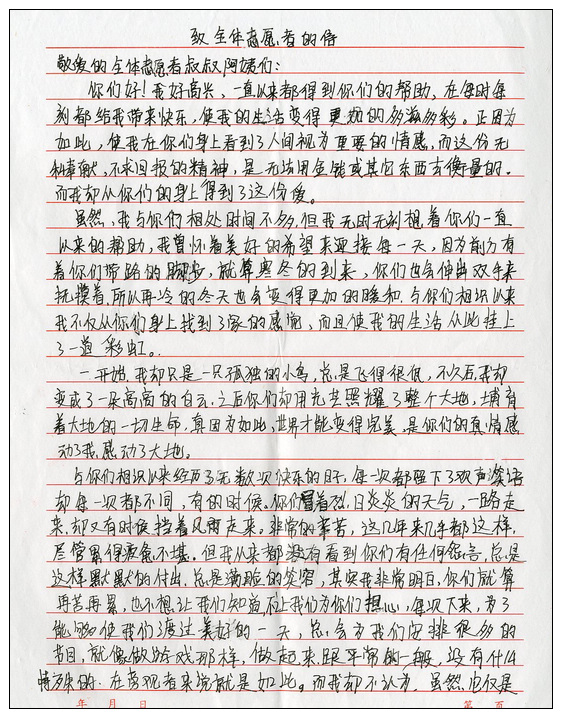 致全体志愿者的信
敬爱的全体志愿者叔叔阿姨们：
你们好！我好高兴，一直以来都得到你们的帮助，在每时每
刻都给我带来快乐，使我的生活变得更加的多滋多彩。正因为
如此，使我在你们身上看到了人间视为重要的情感，而这份无
私奉献，不求回报的精神，是无法用金钱或其它东西去衡量的。
而我却从你们的身上得到了这份爱。
虽然，我与你们相处时间不多，但我无时无刻想着你们一直
以来的帮助，我曾怀着美好的希望来迎接每一天，因为前方有
着你们带路的脚步，就算寒冬的到来，你们也会伸出双手来
抚摸着，所以再冷的冬天也会变得更加的暖和。与你们相识以来
我不仅从你们身上找到了家的感觉，而且使我的生活从此挂上
了一道彩虹。
一开始，我却只是一只孤独的小鸟，总是飞得很低，不久后，我却
变成了一朵高高的白云，之后你们却用光芒照耀了整个大地，哺育
着大地的一切生命，真因为如此，世界才能变得完美，是你们的真情感
动了我，感动了大地。
与你们相识以来经历了无数次快乐的日子，每一次都留下了欢声笑语
却每一次都不同，有的时候，你们冒着烈日炎炎的天气，一路走
来，却又有时候，挡着风雨走来。非常的辛苦，这几年来几乎都这样，
尽管累得疲惫不堪。但我从来都没有看到你们有任何怨言，总是
这样默默的付出，总是满脸的笑容，其实我非常明白，你们就算
再苦再累，也不想让我们知道，不让我们为你们担心，每次下来，为了
能够使我们渡过美好的一天，总会为我们安排很多的
节目，就像做游戏那样，做起来，跟平常的一般，没有什么
特殊的，在旁观者来说就是如此。而我却不认为，虽然，也仅是
年 月 日 第 页